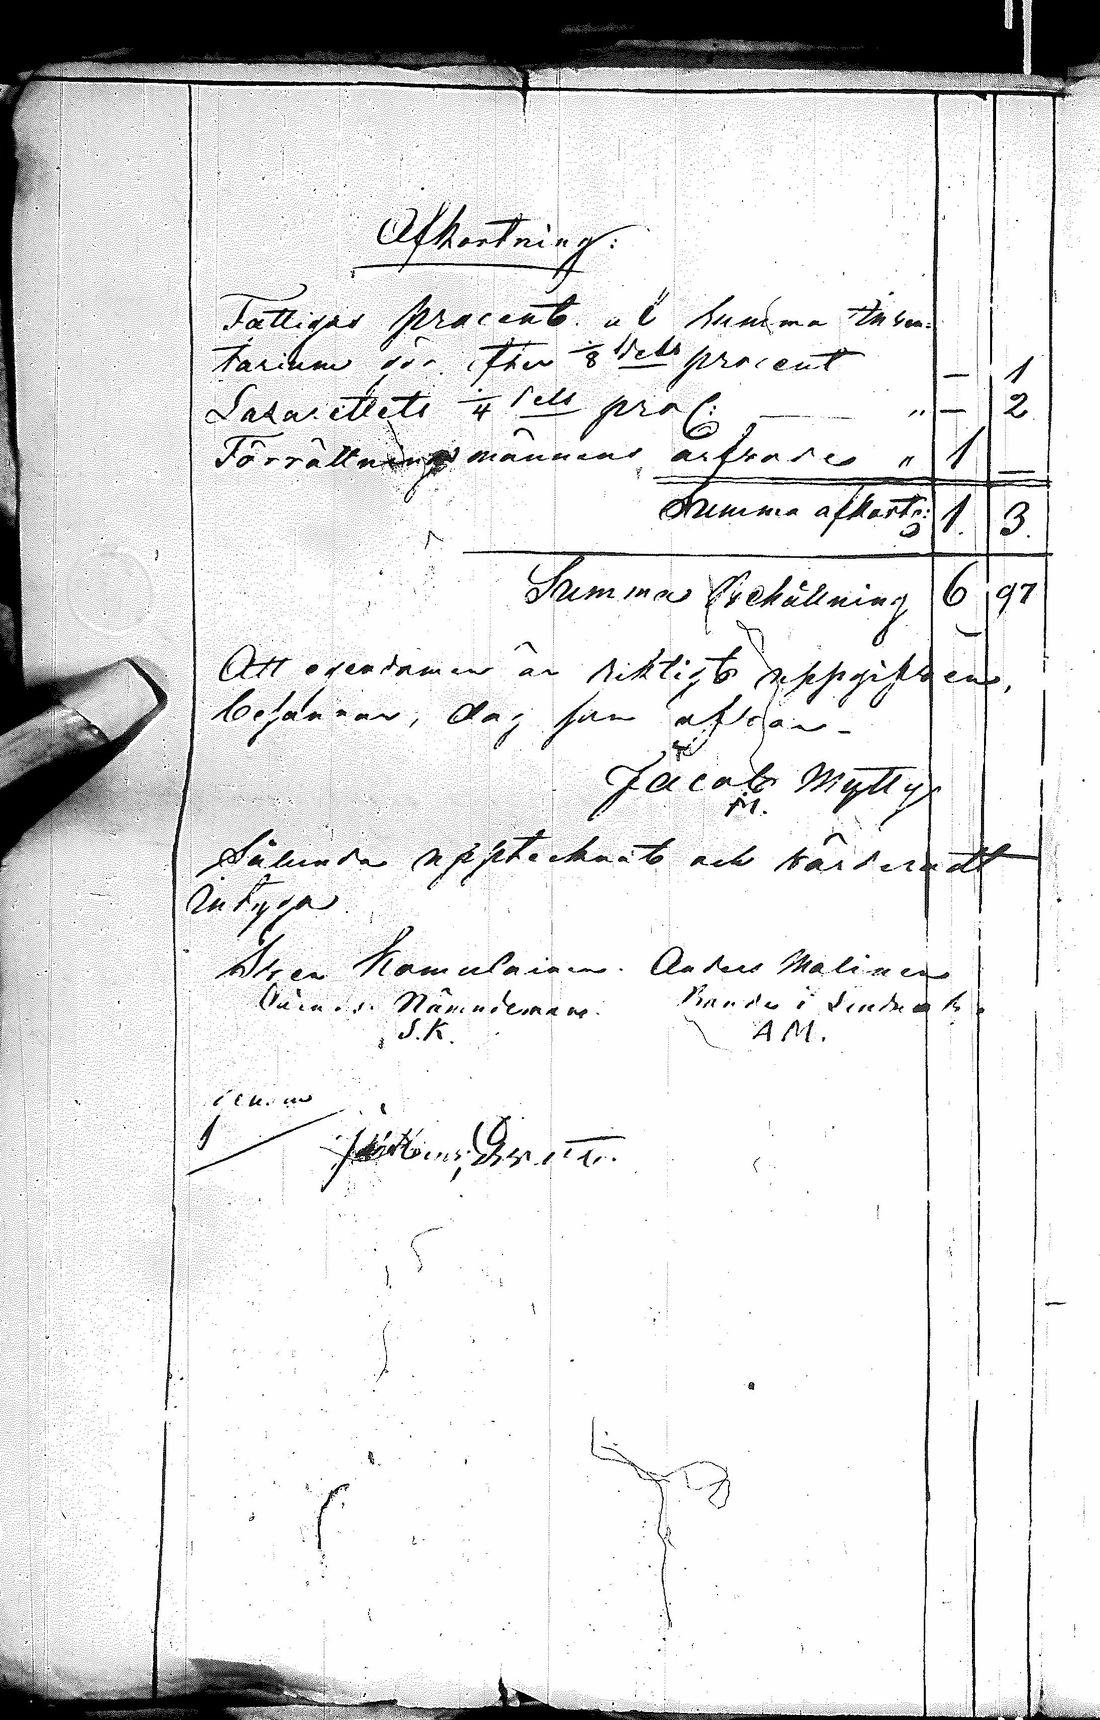 Afkortning:
Fattiges procent af Summa Inven-
tarium gör efter 1/8 dels procent — 1
Lazarettets 1/4 dels proc: — " — 2
Förrättningsmännens arfvode " 1 —
Summa afkortn: 1. 3.
Summa Behållning 6 97
Att egendomen är riktigt uppgifven,
dag som ofvan -
Jacob Mytty
M.
Sålunda upptecknat och värderadt
intyga
Sven Komulainen. Anders Malinen
Nämndeman. Bonde i
S.K. A M.
1